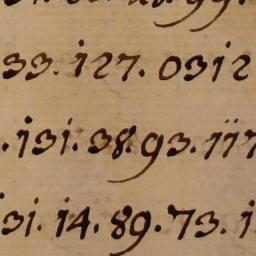 33. 127. 0312
. 131. 38. 93. 117
31. 14. 89. 73. 1